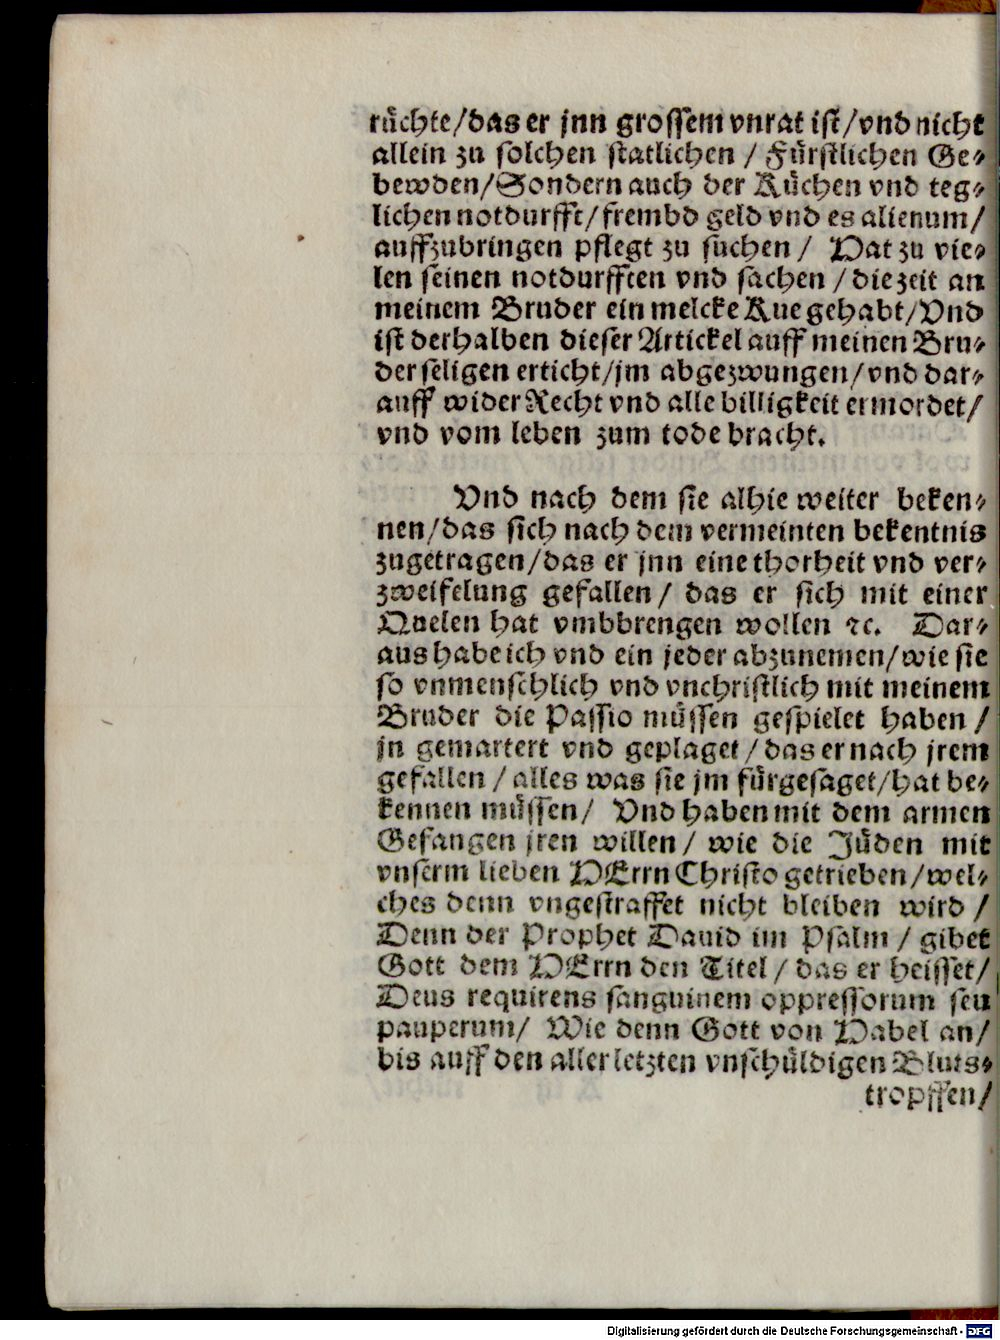 rüchte/das er jnn grossem vnrat ist/vnd nicht
allein zu solchen statlichen / Fürstlichen Ge-
bewden/Sondern auch der Küchen vnd teg-
lichen notdurfft/frembd geld vnd es alienum/
auffzubringen pflegt zu suchen / Hat zu vie-
len seinen notdurfften vnd sachen / die zeit an
meinem Bruder ein melcke Kue gehabt/Vnd
ist derhalben dieser Artickel auff meinen Bru-
der seligen erticht/jm abgezwungen/vnd dar-
auff wider Recht vnd alle billigkeit ermordet/
vnd vom leben zum tode bracht.
Vnd nach dem sie alhie weiter beken-
nen/das sich nach dem vermeinten bekentnis
zugetragen/das er jnn eine thorheit vnd ver-
zweifelung gefallen/ das er sich mit einer
Quelen hat vmbbrengen wollen ꝛc. Dar-
aus habe ich vnd ein jeder abzunemen/wie sie
so vnmenschlich vnd vnchristlich mit meinem
Bruder die Passio müssen gespielet haben /
jn gemartert vnd geplaget / das er nach jrem
gefallen / alles was sie jm fürgesaget/hat be-
kennen müssen/ Vnd haben mit dem armen
Gefangen jren willen / wie die Jüden mit
vnserm lieben HErrn Christo getrieben/wel-
ches denn vngestraffet nicht bleiben wird /
Denn der Prophet Dauid im Psalm / gibet
Gott dem HErrn den Titel / das er heisset/
Deus requirens sanguinem oppressorum seu
pauperum/ Wie denn Gott von Habel an/
bis auff den aller letzten vnschüldigen Bluts-
tropffen/
Digitalisierung gefördert durch die Deutsche Forschungsgemeinschaft - DFG